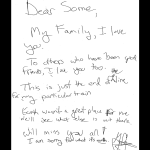 Dear Some,
My Family, I love
you.
To others who have been good
friends, I love you too.
This is just the end of the line
for my particular train
Earth wasn't a great place for me
we'll see what else is out there
will miss you all!
I am sorry